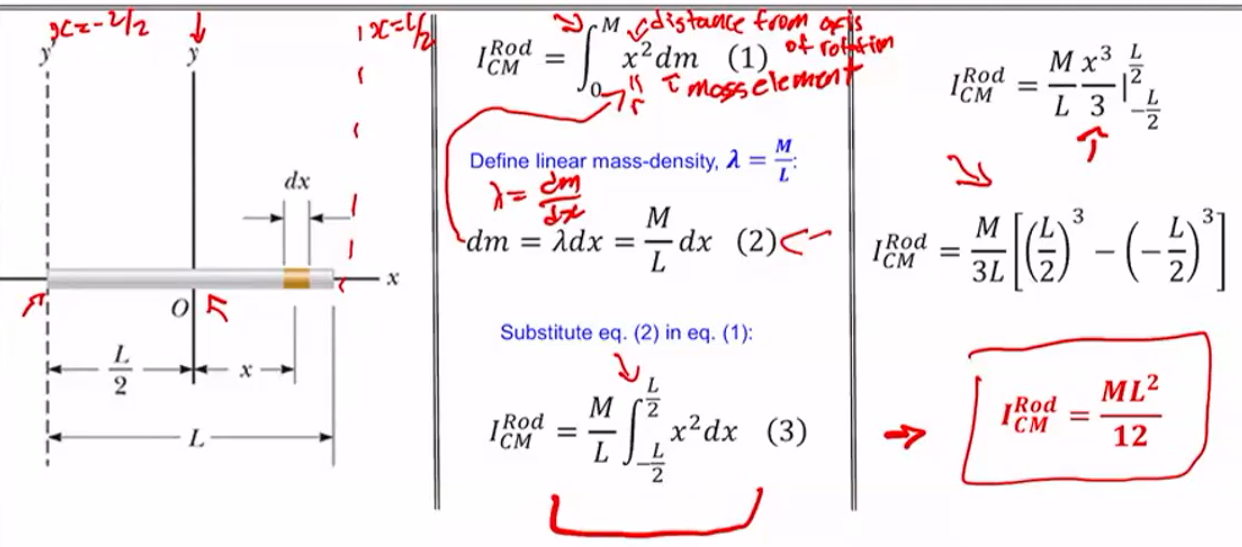 x=-L/2
x=L/2
y'
y
dx
x
O
L/2
x
L
I_{CM}^{Rod} = ∫_0^M x²dm (1)
distance from axis
of rotation
mass element
r
Define linear mass-density, λ = M/L:
λ = dm/dx
dm = λdx = M/L dx (2)
Substitute eq. (2) in eq. (1):
I_{CM}^{Rod} = M/L ∫_{-L/2}^{L/2} x²dx (3)
I_{CM}^{Rod} = M/L x³/3 |_{-L/2}^{L/2}
I_{CM}^{Rod} = M/3L [(L/2)³ − (−L/2)³]
I_{CM}^{Rod} = ML²/12